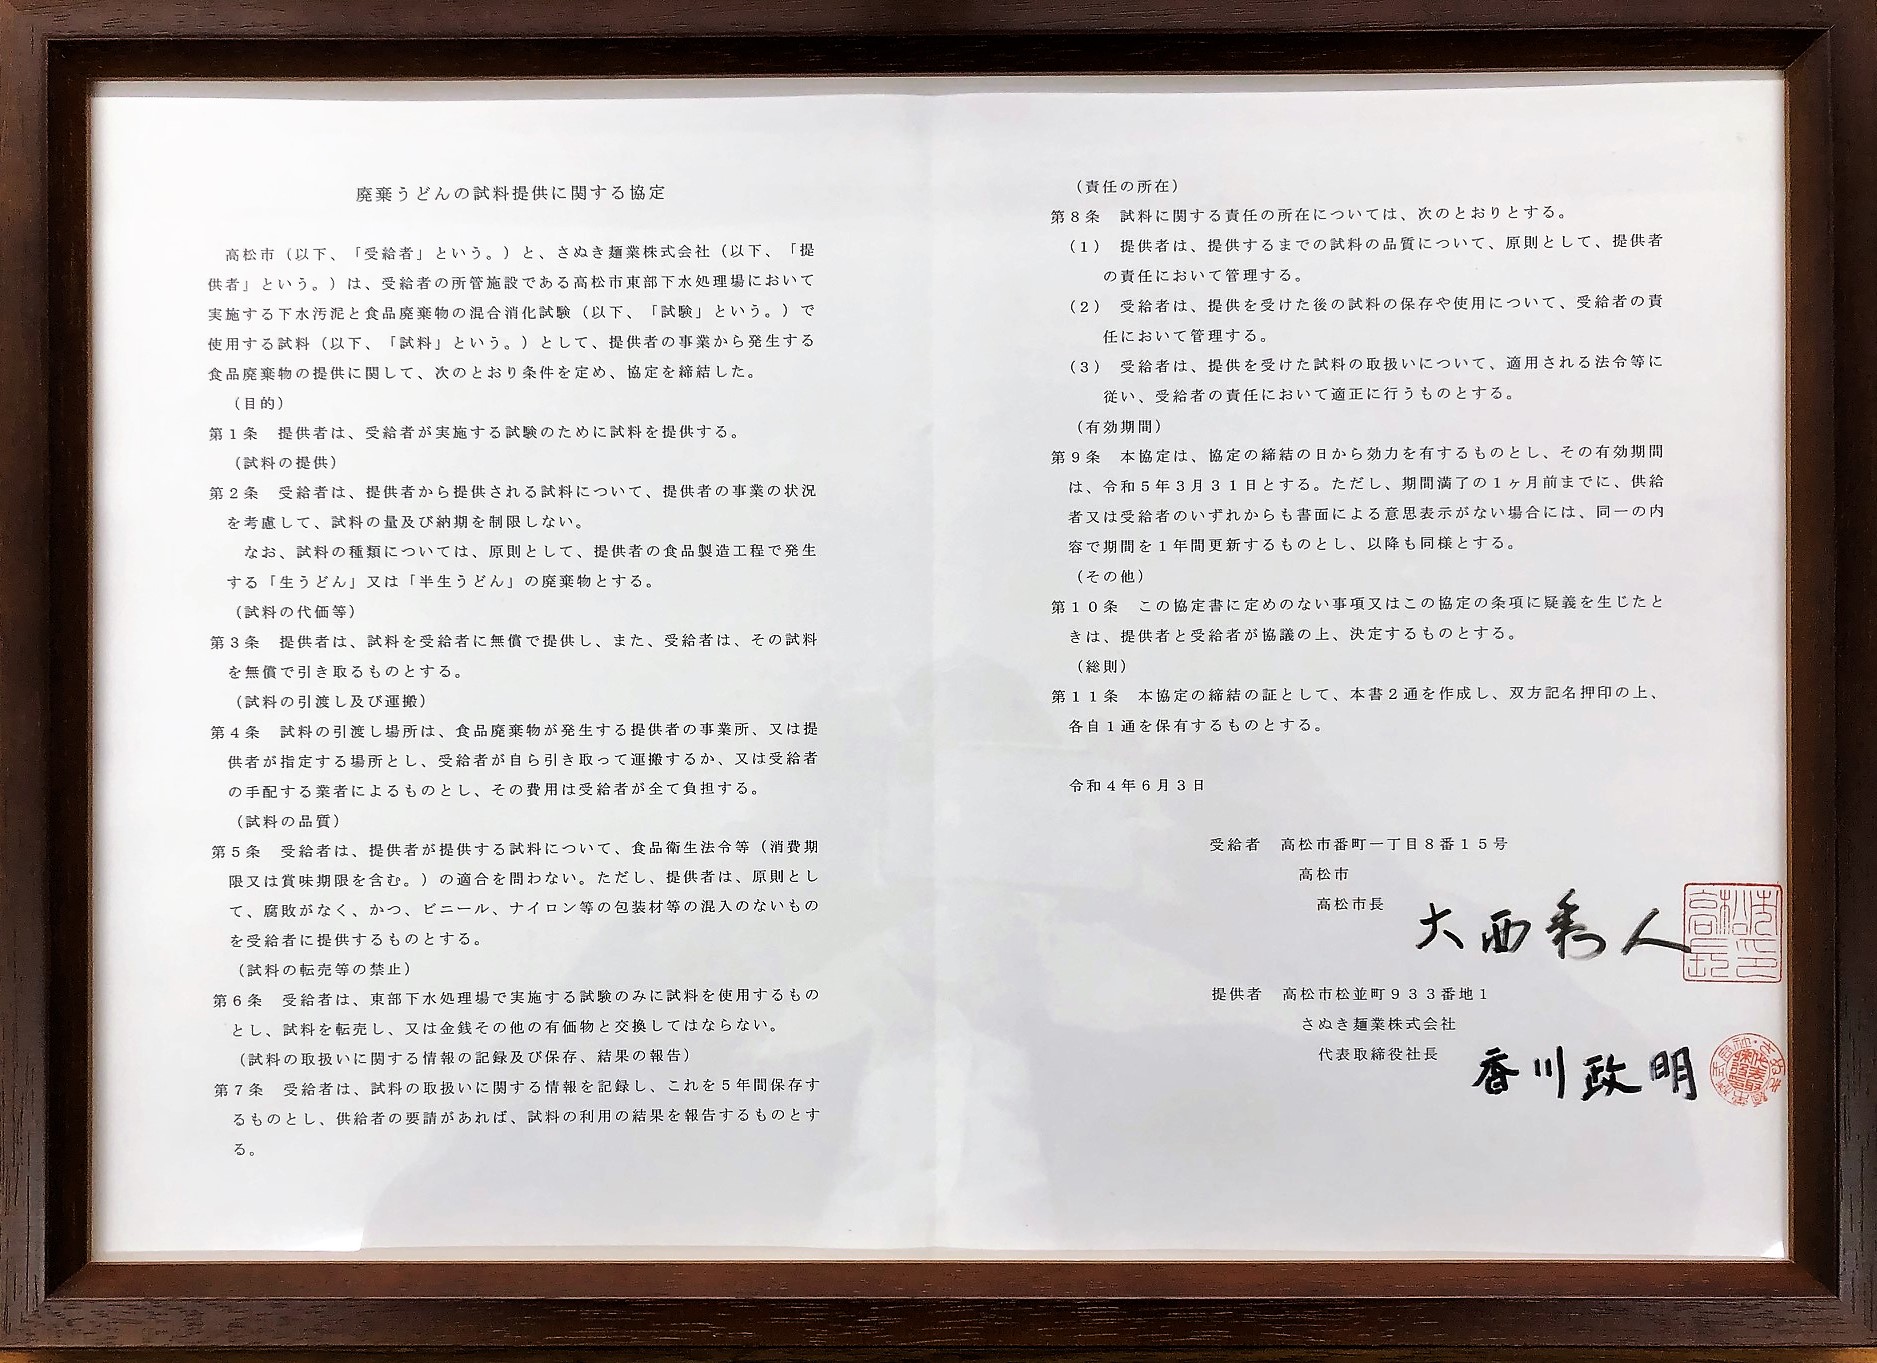 廃棄うどんの試料提供に関する協定
高松市（以下、「受給者」という。）と、さぬき麺業株式会社（以下、「提
供者」という。）は、受給者の所管施設である高松市東部下水処理場において
実施する下水汚泥と食品廃棄物の混合消化試験（以下、「試験」という。）で
使用する試料（以下、「試料」という。）として、提供者の事業から発生する
食品廃棄物の提供に関して、次のとおり条件を定め、協定を締結した。
（目的）
第１条　提供者は、受給者が実施する試験のために試料を提供する。
（試料の提供）
第２条　受給者は、提供者から提供される試料について、提供者の事業の状況
を考慮して、試料の量及び納期を制限しない。
なお、試料の種類については、原則として、提供者の食品製造工程で発生
する「生うどん」又は「半生うどん」の廃棄物とする。
（試料の代価等）
第３条　提供者は、試料を受給者に無償で提供し、また、受給者は、その試料
を無償で引き取るものとする。
（試料の引渡し及び運搬）
第４条　試料の引渡し場所は、食品廃棄物が発生する提供者の事業所、又は提
供者が指定する場所とし、受給者が自ら引き取って運搬するか、又は受給者
の手配する業者によるものとし、その費用は受給者が全て負担する。
（試料の品質）
第５条　受給者は、提供者が提供する試料について、食品衛生法令等（消費期
限又は賞味期限を含む。）の適合を問わない。ただし、提供者は、原則とし
て、腐敗がなく、かつ、ビニール、ナイロン等の包装材等の混入のないもの
を受給者に提供するものとする。
（試料の転売等の禁止）
第６条　受給者は、東部下水処理場で実施する試験のみに試料を使用するもの
とし、試料を転売し、又は金銭その他の有価物と交換してはならない。
（試料の取扱いに関する情報の記録及び保存、結果の報告）
第７条　受給者は、試料の取扱いに関する情報を記録し、これを５年間保存す
るものとし、供給者の要請があれば、試料の利用の結果を報告するものとす
る。
（責任の所在）
第８条　試料に関する責任の所在については、次のとおりとする。
（１）　提供者は、提供するまでの試料の品質について、原則として、提供者
の責任において管理する。
（２）　受給者は、提供を受けた後の試料の保存や使用について、受給者の責
任において管理する。
（３）　受給者は、提供を受けた試料の取扱いについて、適用される法令等に
従い、受給者の責任において適正に行うものとする。
（有効期間）
第９条　本協定は、協定の締結の日から効力を有するものとし、その有効期間
は、令和５年３月３１日とする。ただし、期間満了の１ヶ月前までに、供給
者又は受給者のいずれからも書面による意思表示がない場合には、同一の内
容で期間を１年間更新するものとし、以降も同様とする。
（その他）
第１０条　この協定書に定めのない事項又はこの協定の条項に疑義を生じたと
きは、提供者と受給者が協議の上、決定するものとする。
（総則）
第１１条　本協定の締結の証として、本書２通を作成し、双方記名押印の上、
各自１通を保有するものとする。
令和４年６月３日
受給者　高松市番町一丁目８番１５号
高松市
高松市長　大西秀人
高松市長印
提供者　高松市松並町９３３番地１
さぬき麺業株式会社
代表取締役社長　香川政明